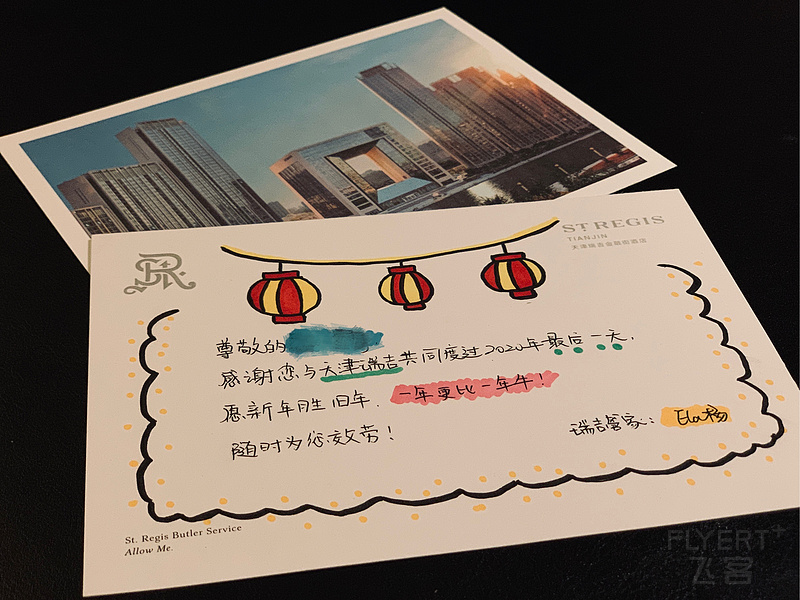 ST REGIS
TIANJIN
天津瑞吉金融街酒店
SR
尊敬的
感谢您与天津瑞吉共同度过2020年最后一天,
愿新年胜旧年. 一年更比一年牛!
随时为您效劳!
瑞吉管家: Ela杨
St. Regis Butler Service
Allow Me.
FLYERT+
飞客